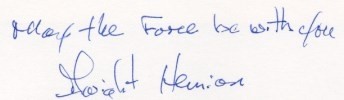 May the Force be with you
Dwight Hemion